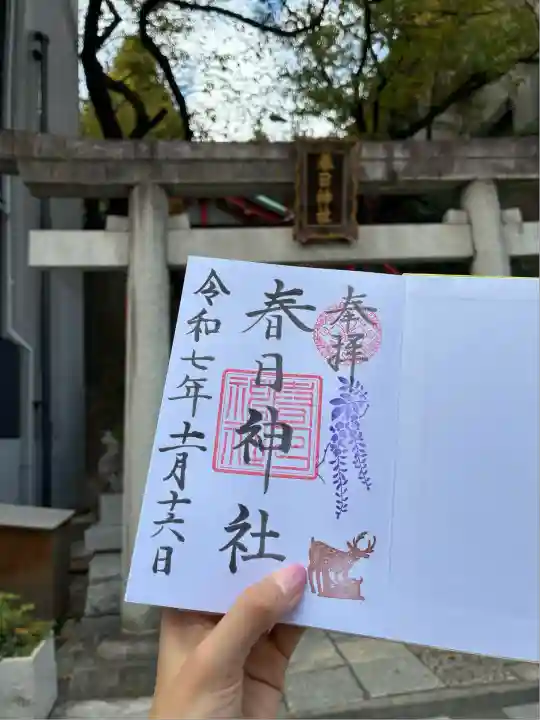 春日神社
奉拝
春日神社
春日
神社
令和七年十一月十六日